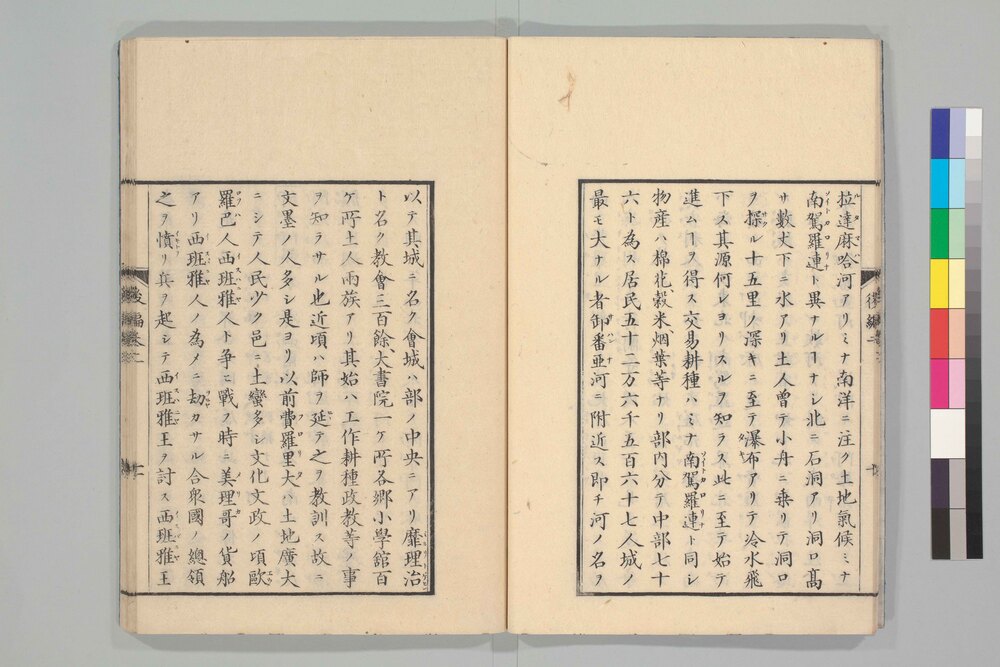 拉達麻哈河アリミナ南洋ニ注ク土地氣候ミナ
南駕羅連ト異ナルヿナシ北ニ石洞アリ洞口高
サ數丈下ニ水アリ土人曾テ小舟ニ乗リテ洞口
ヲ探ル十五里ノ深キニ至テ瀑布アリテ冷水飛
下ス其源何レヨリスルヲ知ラス此ニ至テ始テ
進ムヿヲ得ス交易耕種ハミナ南駕羅連ト同シ
物産ハ棉花穀米烟葉等ナリ部内分テ中部七十
六ト為ス居民五十二万六千五百六十七人城ノ
最モ大ナル者御番亜河ニ附近ス即チ河ノ名ヲ
以テ其城ニ名ク會城ハ部ノ中央ニアリ靡理治
ト名ク教會三百餘大書院一ケ所各郷小學舘百
ケ所土人兩族アリ其始ハ工作耕種政教等ノ事
ヲ知ラサル也近頃ハ師ヲ延テ之ヲ教訓ス故ニ
文墨ノ人多シ是ヨリ以前費羅里大ハ土地廣大
ニシテ人民少ク邑ニ土蠻多シ文化文政ノ頃歐
羅巴人西班雅人ト争ヒ戰フノ時ニ美理哥ノ貨船
アリ西班雅人ノ為メニ劫カサル合衆國ノ總領
之ヲ憤リ兵ヲ起シテ西班雅王ヲ討ス西班雅王
後編
後編巻二
十
十一